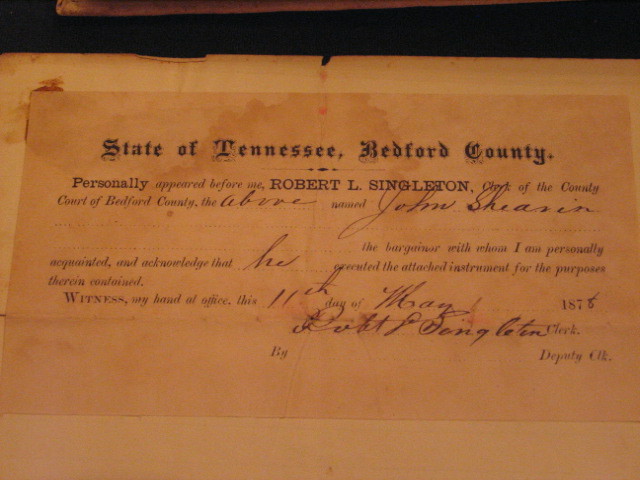 State of Tennessee, Bedford County.
Personally appeared before me, ROBERT L. SINGLETON, Clerk of the County
Court of Bedford County, the above named John Shearin
the bargainor with whom I am personally
acquainted, and acknowledge that he executed the attached instrument for the purposes
therein contained.
WITNESS, my hand at office, this 11th day of May 187
Robt L Singleton Clerk.
By Deputy Clk.